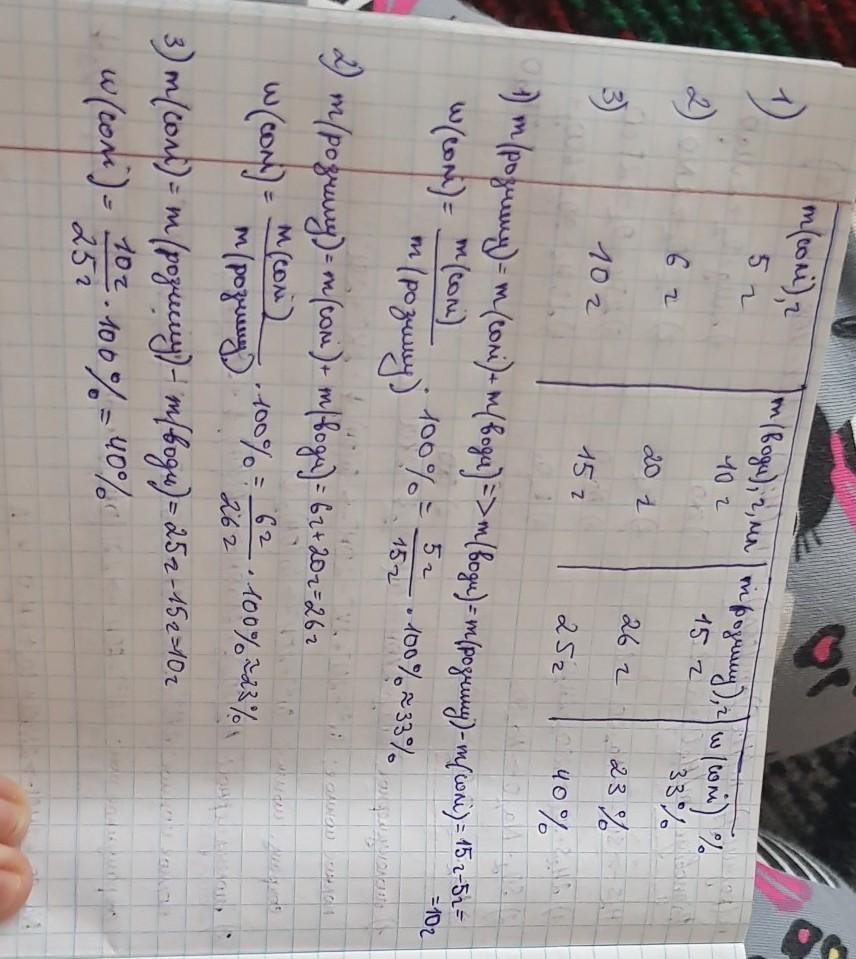 m(солі), г | m(води), г, мл | m(розчину), г | w(солі) %
1) 5 г 10 г 15 г 33%
2) 6 г 20 г 26 г 23%
3) 10 г 15 г 25 г 40%
1) m(розчину) = m(солі) + m(води) => m(води) = m(розчину) - m(солі) = 15г - 5г =
= 10г
w(солі) = m(солі) / m(розчину) · 100% = 5г / 15г · 100% ≈ 33%
2) m(розчину) = m(солі) + m(води) = 6г + 20г = 26г
w(солі) = m(солі) / m(розчину) · 100% = 6г / 26г · 100% ≈ 23%
3) m(солі) = m(розчину) - m(води) = 25г - 15г = 10г
w(солі) = 10г / 25г · 100% = 40%